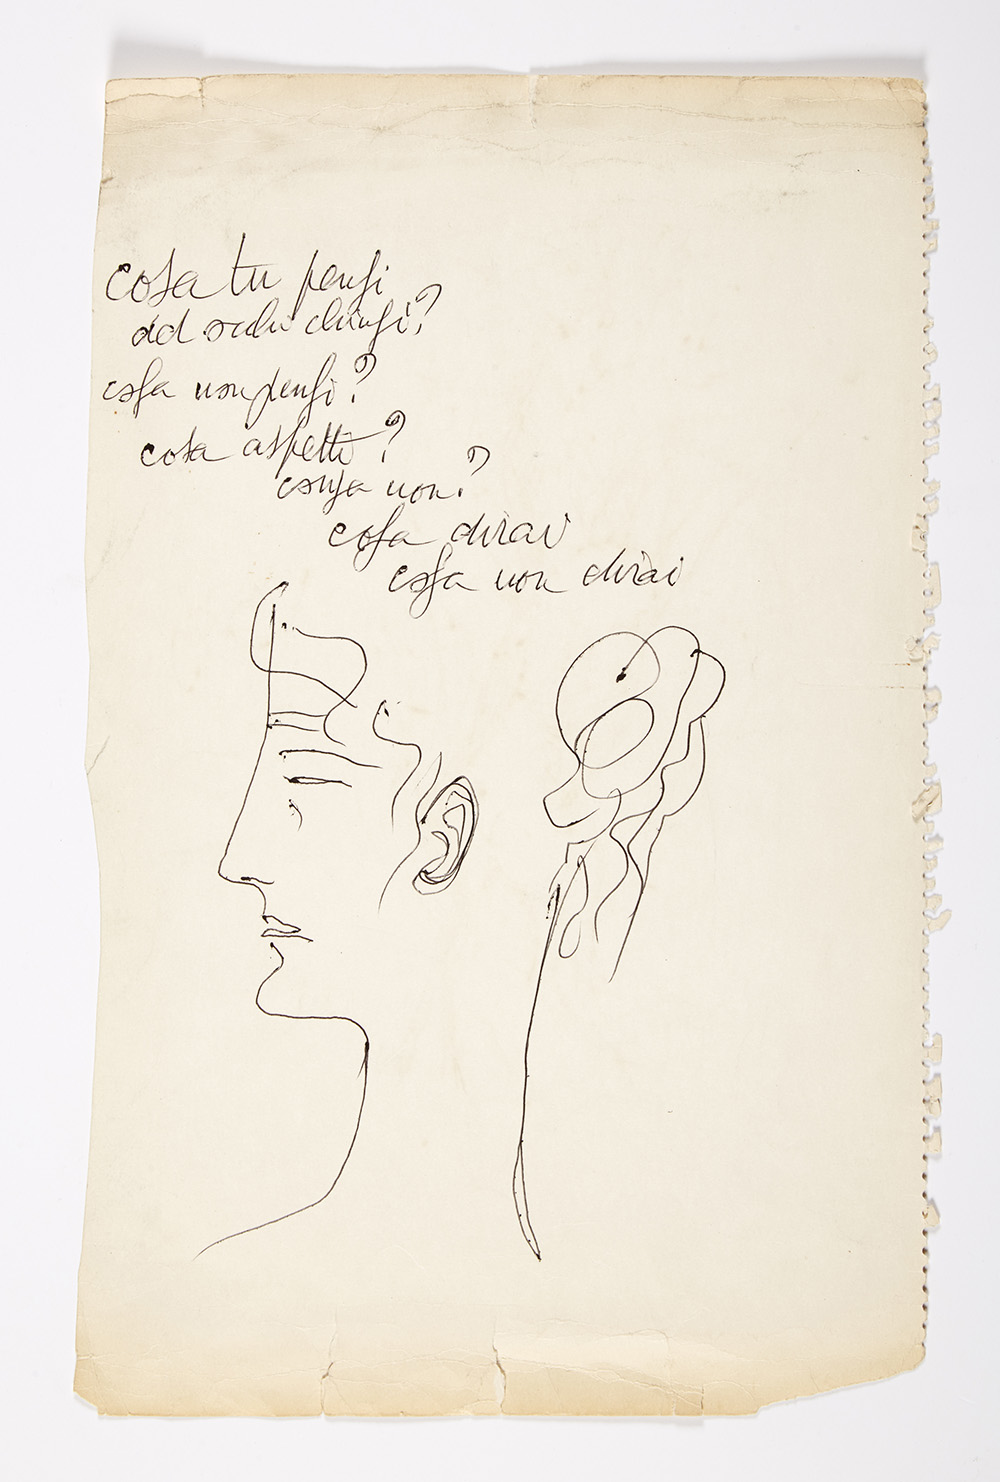 cosa tu pensi
ad occhi chiusi?
cosa non pensi?
cosa aspetti?
cosa non?
cosa dirai
cosa non dirai